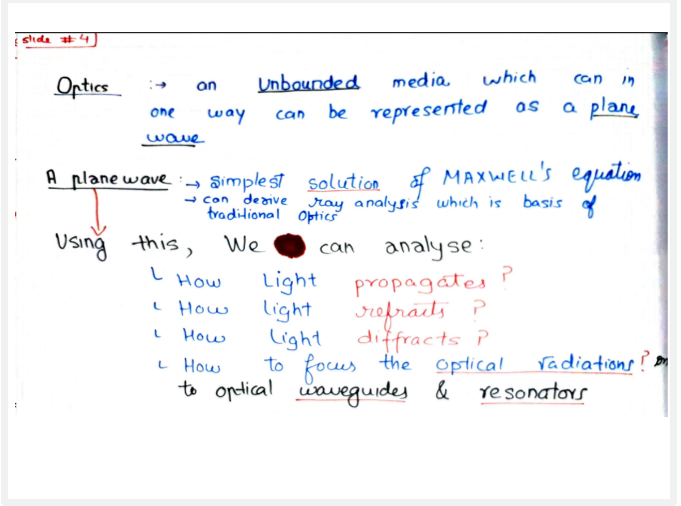 slide #4
Optics :→ an Unbounded media which can in
one way can be represented as a plane
wave
A plane wave :→ simplest solution of MAXWELL'S equation
→ can derive ray analysis which is basis of
traditional Optics
Using this, We can analyse:
└ How Light propagates?
└ How light refracts?
└ How Light diffracts?
└ How to focus the optical radiations?
to optical waveguides & resonators